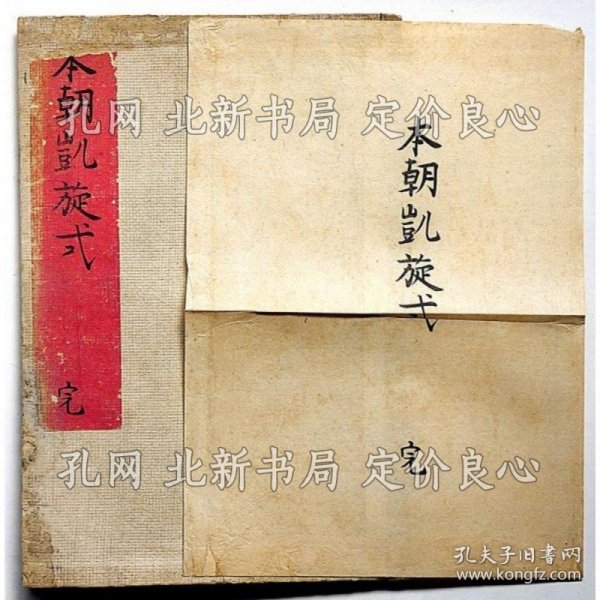 本朝凱旋式
完
本朝凱旋式
完
孔网 北新书局 定价良心
孔网 北新书局 定价良心
孔夫子旧书网
www.kongfz.com